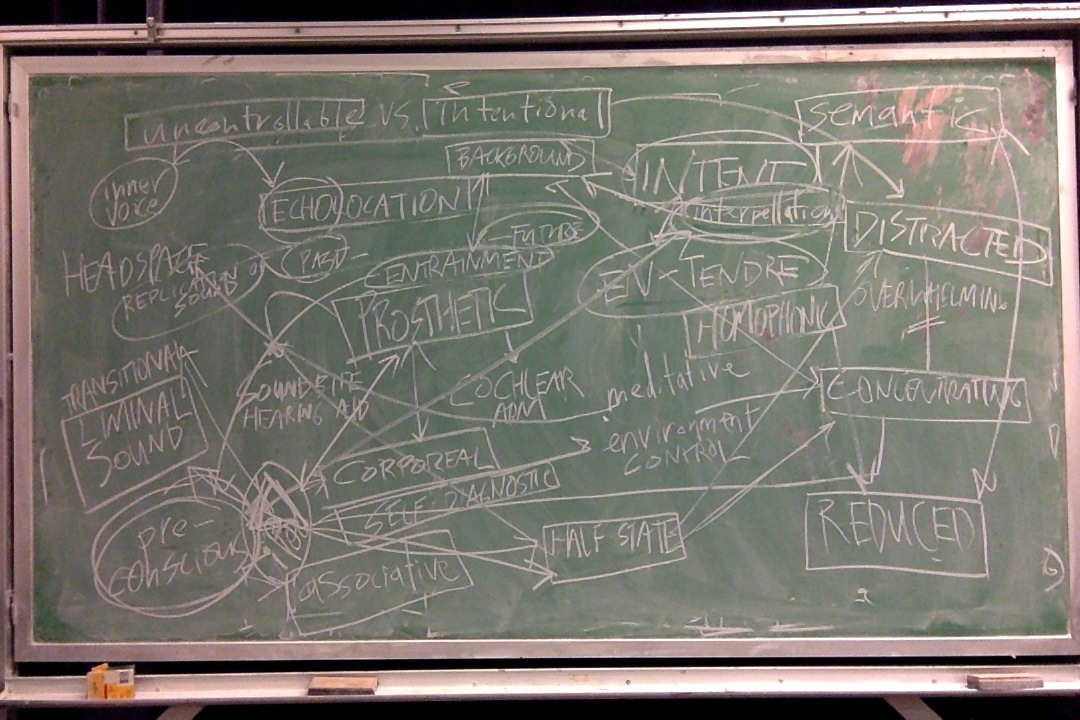 uncontrollable VS. intentional
semantic
BACKGROUND
INTENT
inner
voice
ECHOLOCATION
interpellation
DISTRACTED
FUTURE
HEADSPACE
REPLICATION OF
SOUND
PAST
ENTRAINMENT
EN-TENDRE
PROSTHETIC
HOMOPHONIC
OVERWHELMING
TRANSITIONAL
LIMINAL
SOUND
HEARING AID
COCHLEAR
meditative
CONCENTRATING
environment
CONTROL
CORPOREAL
SELF-DIAGNOSTIC
pre-
conscious
HALF STATE
REDUCED
associative